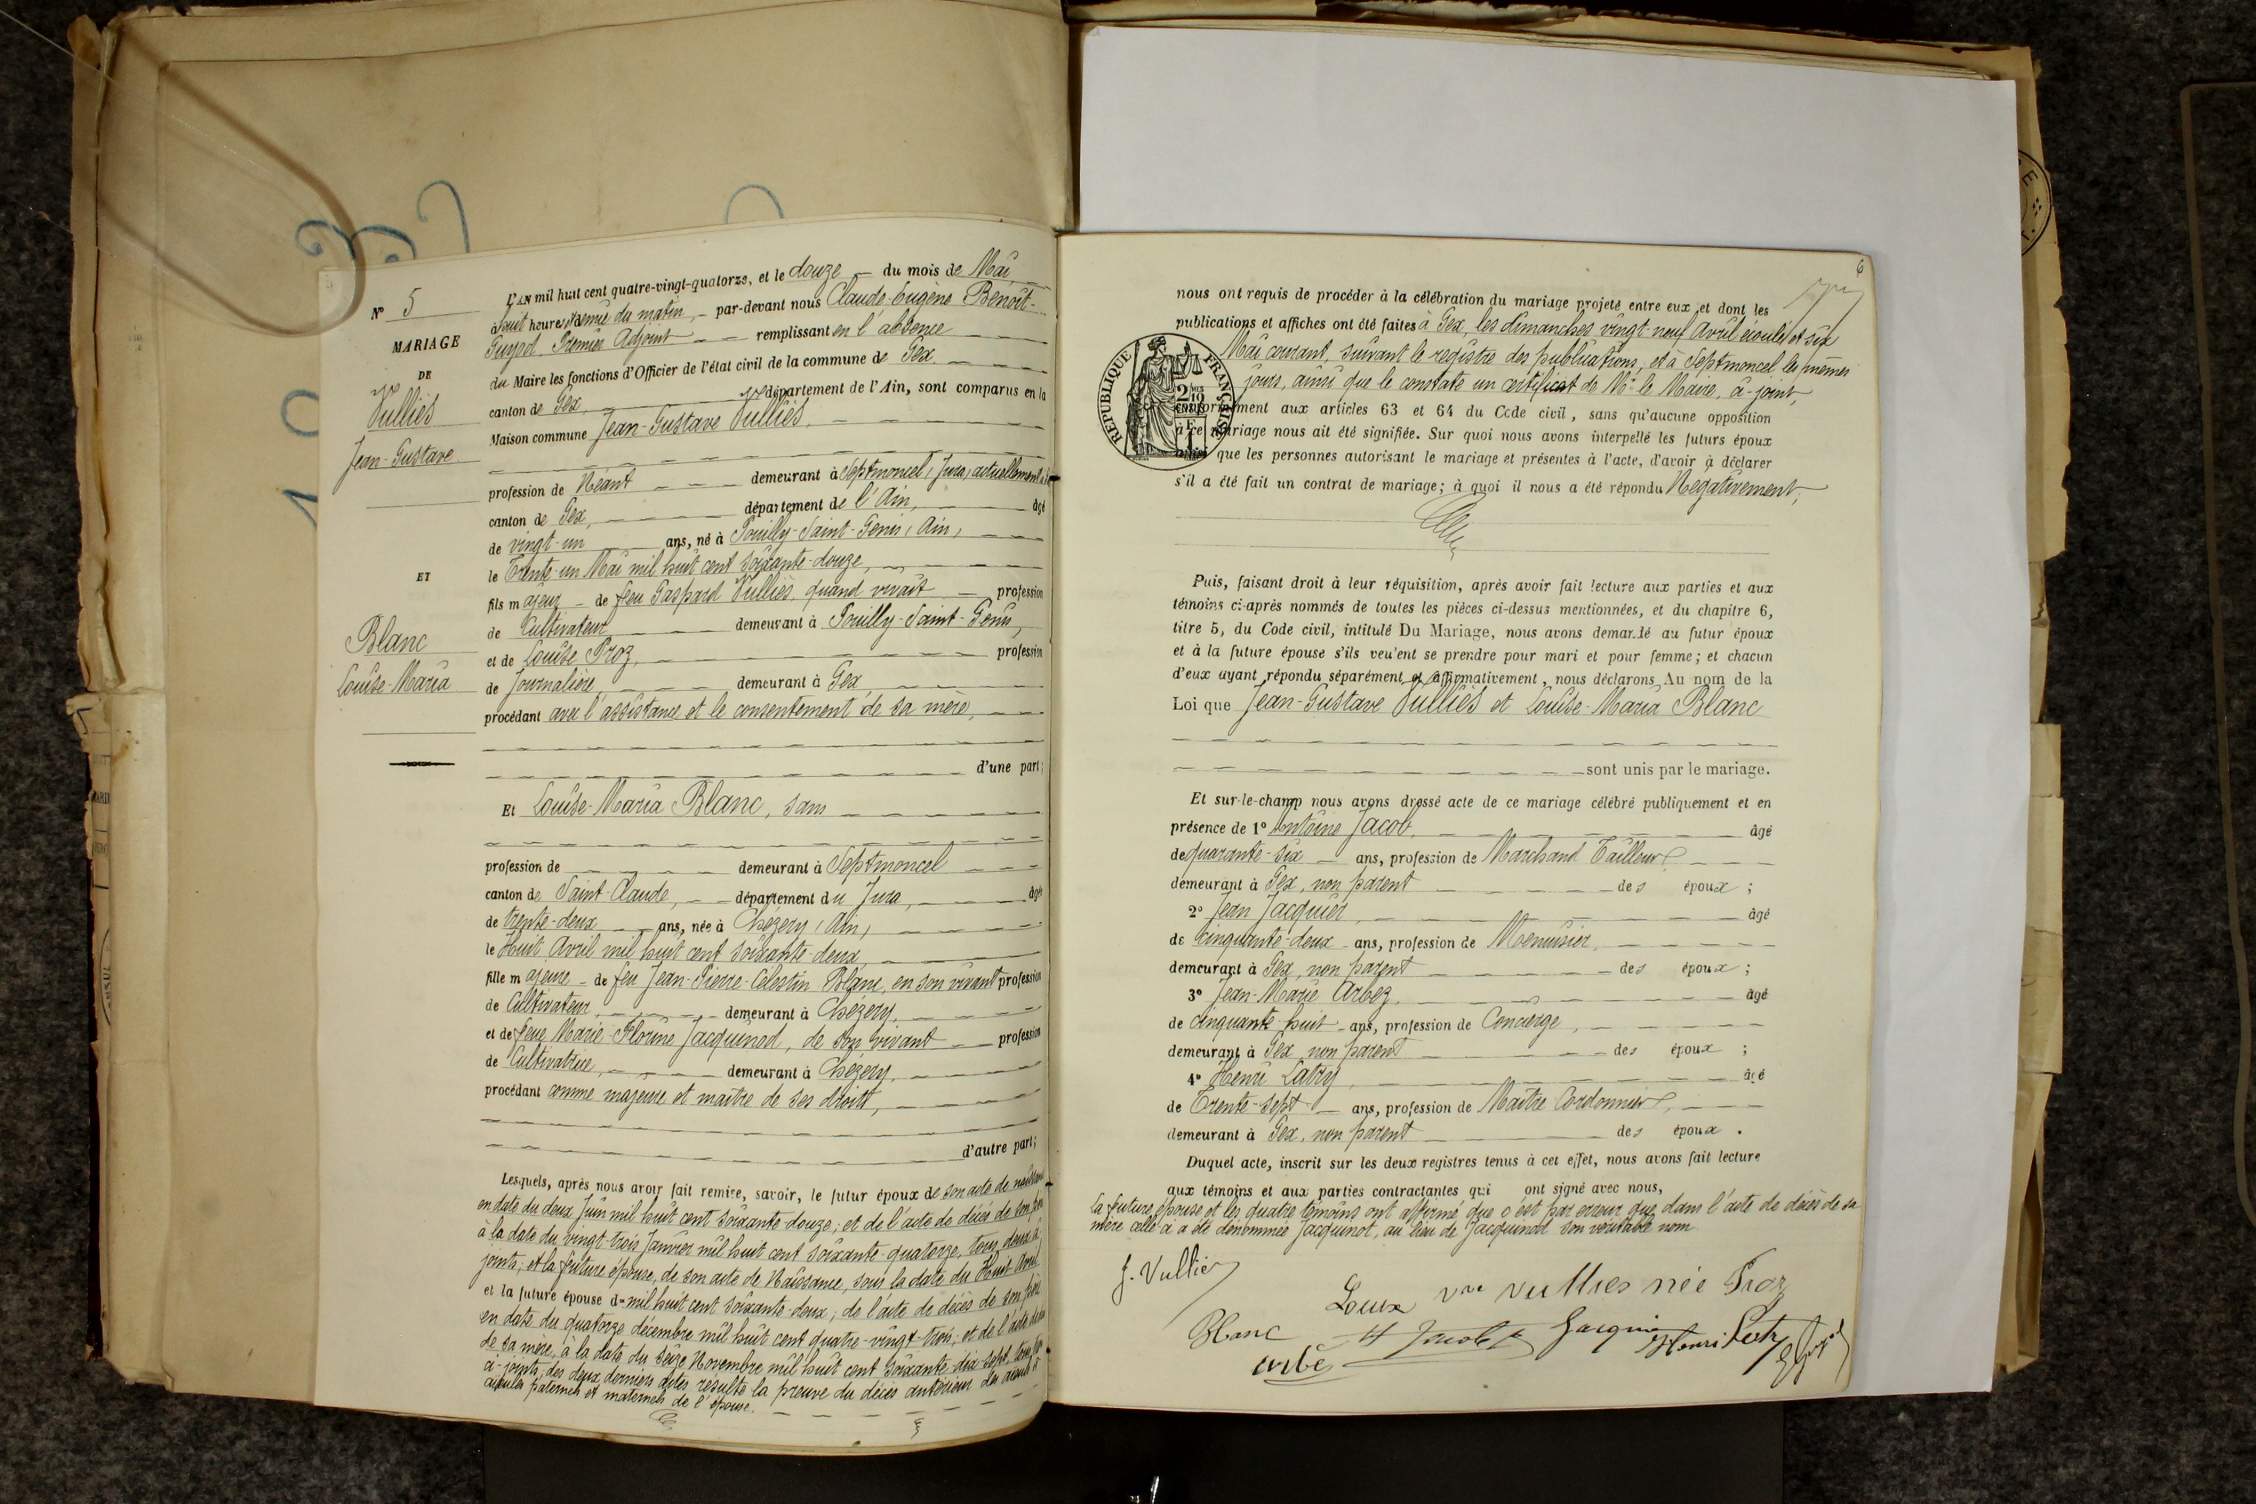 N° 5
MARIAGE
DE
Vulliès
Jean-Gustave
ET
Blanc
Louise-Maria
L'AN mil huit cent quatre-vingt-quatorze, et le douze du mois de Mai
à huit heures et demie du matin, par-devant nous Claude-Eugène Benoît-
Guyod, Premier Adjoint remplissant en l'absence
du Maire les fonctions d'Officier de l'état civil de la commune de Gex
canton de Gex, département de l'Ain, sont comparus en la
Maison commune Jean-Gustave Vulliès,
profession de Néant demeurant à Septmoncel (Jura) actuellement à
canton de Gex, département de l'Ain, âgé
de vingt-un ans, né à Pouilly-Saint-Genis (Ain)
le Trente-un Mai mil huit cent soixante-douze,
fils majeur de feu Gaspard Vulliès, quand vivait profession
de Cultivateur demeurant à Pouilly-Saint-Genis,
et de Louise Proz, profession
de Journalière, demeurant à Gex
procédant avec l'assistance et le consentement de sa mère,
d'une part;
Et Louise-Maria Blanc, sans
profession de demeurant à Septmoncel
canton de Saint-Claude, département du Jura, âgée
de trente-deux ans, née à Chézery (Ain)
le Huit Avril mil huit cent soixante-deux,
fille majeure de feu Jean-Pierre-Célestin Blanc, en son vivant profession
de Cultivateur, demeurant à Chézery,
et de feue Marie-Florine Jacquinod, de son vivant profession
de Cultivatrice, demeurant à Chézery,
procédant comme majeure et maître de ses droits,
d'autre part;
Lesquels, après nous avoir fait remise, savoir, le futur époux de son acte de naissance
en date du deux Juin mil huit cent soixante-douze; et de l'acte de décès de son père
à la date du vingt-trois Janvier mil huit cent soixante-quatorze, tous deux ci-
joints; et la future épouse, de son acte de Naissance, sous la date du Huit Avril
et la future épouse d- mil huit cent soixante-deux; de l'acte de décès de son père
en date du quatorze décembre mil huit cent quatre-vingt-trois; et de l'acte de décès
de sa mère, à la date du seize Novembre mil huit cent soixante-dix-sept, tous
ci-joints; des deux derniers actes résulte la preuve du décès antérieur des aieuls et
aieules paternels et maternels de l'épouse.
6
nous ont requis de procéder à la célébration du mariage projeté entre eux et dont les
publications et affiches ont été faites à Gex, les dimanches vingt-neuf Avril écoulé et six
Mai courant, suivant le registre des publications, et à Septmoncel les mêmes
jours, ainsi que le constate un certificat de Mr le Maire, ci-joint,
RÉPUBLIQUE FRANÇAISE
conformément aux articles 63 et 64 du Code civil, sans qu'aucune opposition
à ce mariage nous ait été signifiée. Sur quoi nous avons interpellé les futurs époux
ainsi que les personnes autorisant le mariage et présentes à l'acte, d'avoir à déclarer
s'il a été fait un contrat de mariage; à quoi il nous a été répondu Négativement;
Puis, faisant droit à leur réquisition, après avoir fait lecture aux parties et aux
témoins ci-après nommés de toutes les pièces ci-dessus mentionnées, et du chapitre 6,
titre 5, du Code civil, intitulé Du Mariage, nous avons demandé au futur époux
et à la future épouse s'ils veulent se prendre pour mari et pour femme; et chacun
d'eux ayant répondu séparément et affirmativement, nous déclarons Au nom de la
Loi que Jean-Gustave Vulliès et Louise-Maria Blanc
sont unis par le mariage.
Et sur-le-champ nous avons dressé acte de ce mariage célébré publiquement et en
présence de 1° Antoine Jacob, âgé
de quarante-six ans, profession de Marchand Tailleur
demeurant à Gex, non parent des époux;
2° Jean Jacquier, âgé
de cinquante-deux ans, profession de Menuisier,
demeurant à Gex, non parent des époux;
3° Jean-Marie Arbez, âgé
de cinquante-huit ans, profession de Concierge,
demeurant à Gex, non parent des époux;
4° Henri Latry, âgé
de Trente-sept ans, profession de Maître Cordonnier,
demeurant à Gex, non parent des époux.
Duquel acte, inscrit sur les deux registres tenus à cet effet, nous avons fait lecture
aux témoins et aux parties contractantes qui ont signé avec nous,
La future épouse et les quatre témoins ont affirmé que c'est par erreur que dans l'acte de décès de sa
mère celle-ci a été dénommée Jacquinot, au lieu de Jacquinod son véritable nom
J. Vulliès
Louise vve vullies née Proz
Blanc Jacob Jacquier Henri Latry
arbé